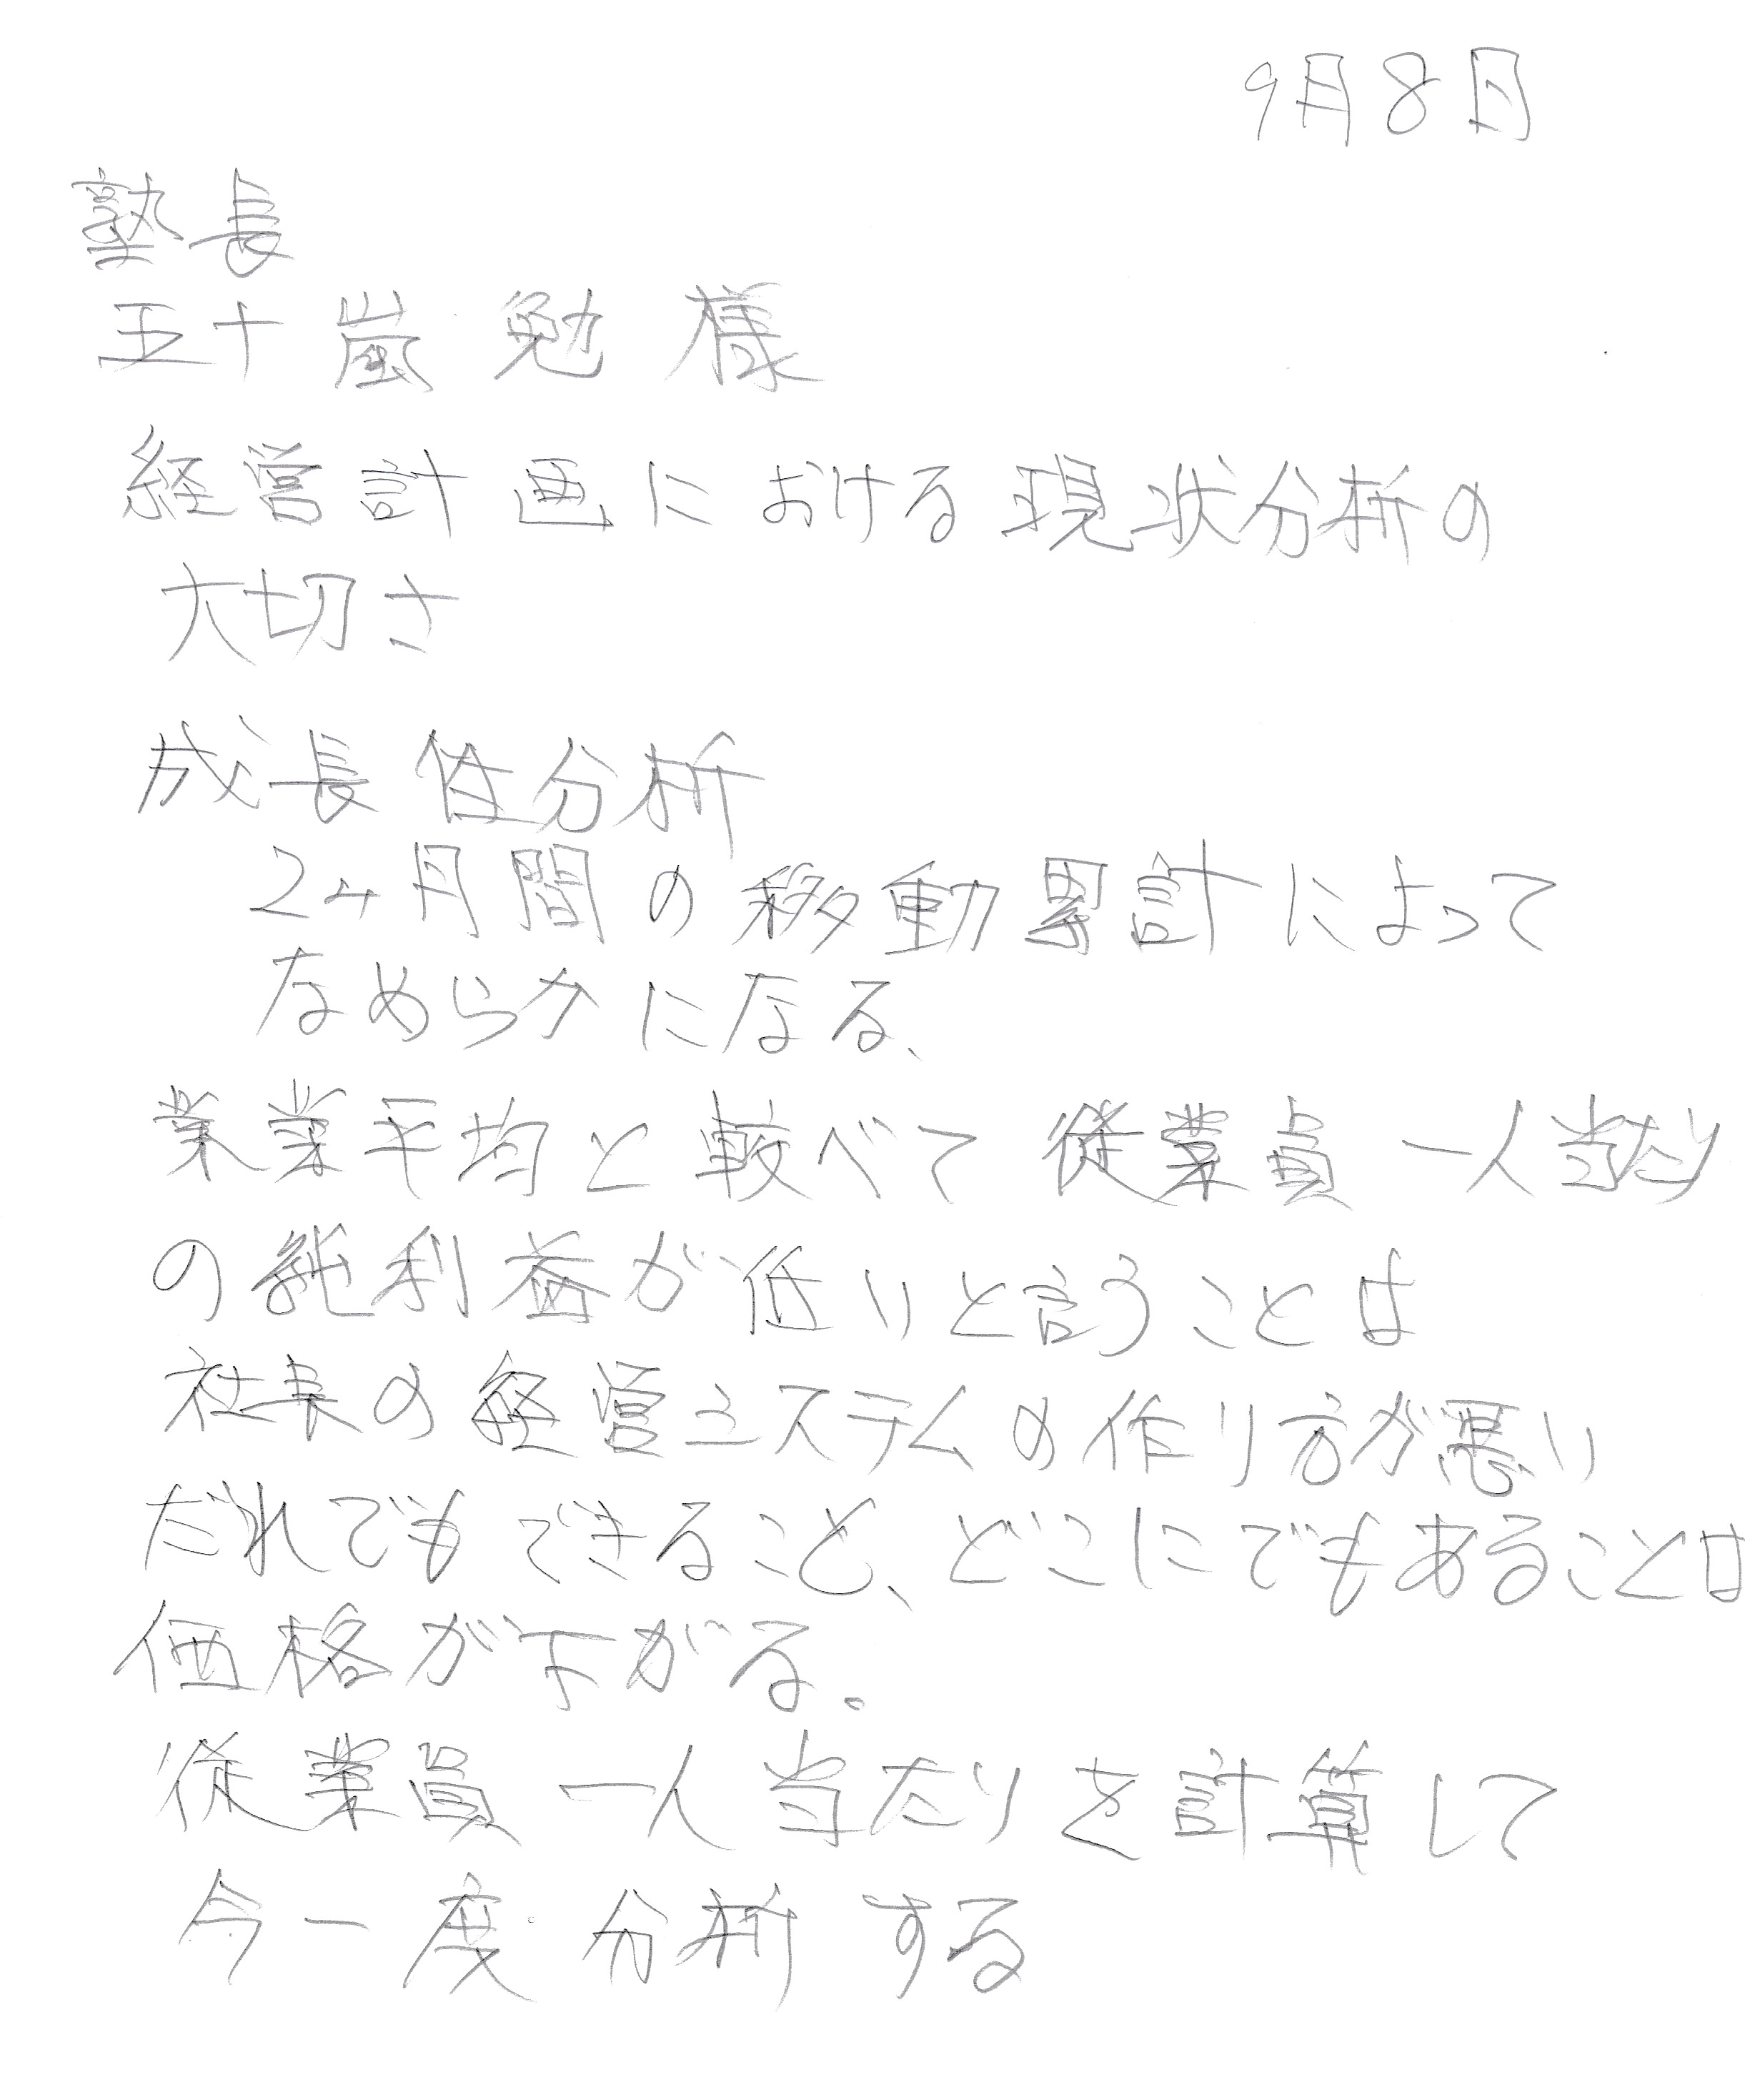 9月8日
塾長
五十嵐 勉 様
経営計画における現状分析の
大切さ
成長性分析
2ヶ月間の移動累計によって
なめらかになる、
業業平均と較べて従業員一人当たり
の純利益が低いと言うことは
社長の経営システムの作り方が悪い
だれでもできること、どこにでもあることは
価格が下がる。
従業員一人当たりを計算して
今一度分析する